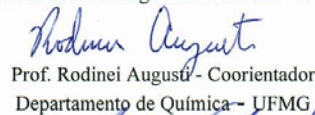 Rodinei Augusti
Prof. Rodinei Augusti - Coorientador
Departamento de Química - UFMG